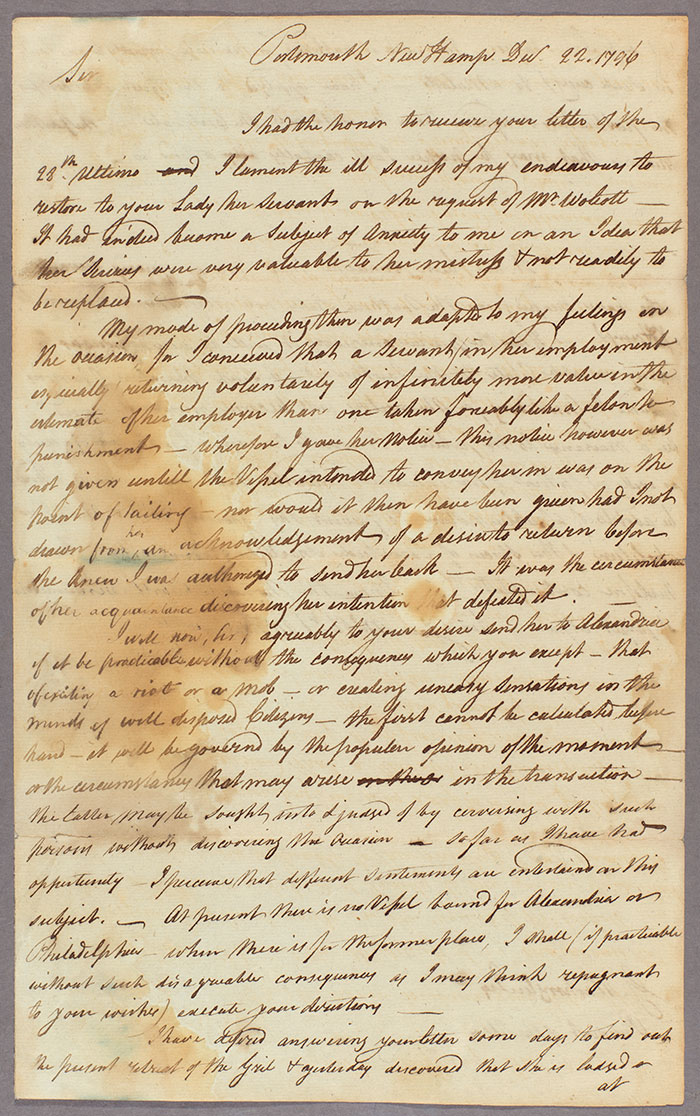 Portsmouth New Hamp Dec. 22. 1796
Sir
I had the honor to receive your letter of the
28th. Ultimo and I lament the ill success of my endeavours to
restore to your Lady her servant on the request of Mr. Wolcott —
It had indied become a Subject of Anxiety to me on an Idea that
her Services were very valuable to her mistress & not readily to
be replaced. —
My mode of proceeding then was adapted to my feelings on
the occasion for I conceived that a servant (in her employment
especially) returning voluntarily of infinitely more value in the
estimate of her employer than one taken forceably like a felon to
punishment — wherefore I gave her Notice — this notice however was
not given untill the Vessel intended to convey her in was on the
point of Sailing — nor would it then have been given had I not
drawn from her, an acknowledgement of a desire to return before
she knew I was authorized to send her back — It was the circumstance
of her acquaintance discovering her intention that defeated it.
I will now, Sir, agreeably to your desire send her to Alexandria
if it be practicable without the consequences which you except — that
of exciting a riot or a mob — or creating uneasy sensations in the
minds of well disposed Citizens — the first cannot be calculated before
hand — it will be governed by the popular opinion of the moment —
or the circumstances that may arise in the transaction —
the latter may be sought into & judged of by conversing with such
persons without discovering the occasion — so far as I have had
opportunity — I perceive that different sentiments are entertained on this
subject. — At present there is no Vessel bound for Alexandria or
Philadelphia — when there is for the former place, I shall (if practicable
without such disagreeable consequences as I may think repugnant
to your wishes) execute your directions —
I have defered answering your letter some days to find out
the present retreat of the Girl & yesterday discovered that she is lodged
at